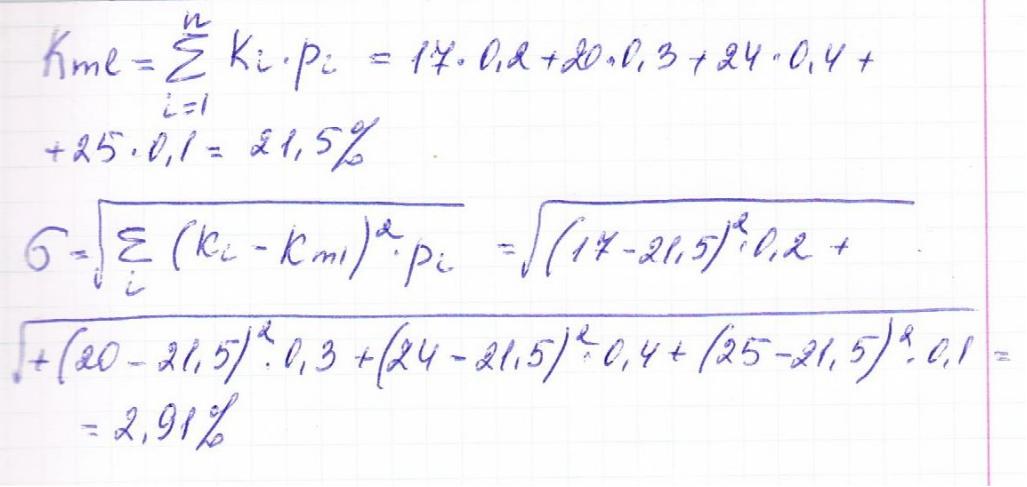 Kme = n∑i=1 Ki · pi = 17 · 0,2 + 20 · 0,3 + 24 · 0,4 +
+ 25 · 0,1 = 21,5%
σ = √∑i (Ki − Km1)² · pi = √(17 − 21,5)² · 0,2 +
√+ (20 − 21,5)² · 0,3 + (24 − 21,5)² · 0,4 + (25 − 21,5)² · 0,1 =
= 2,91%